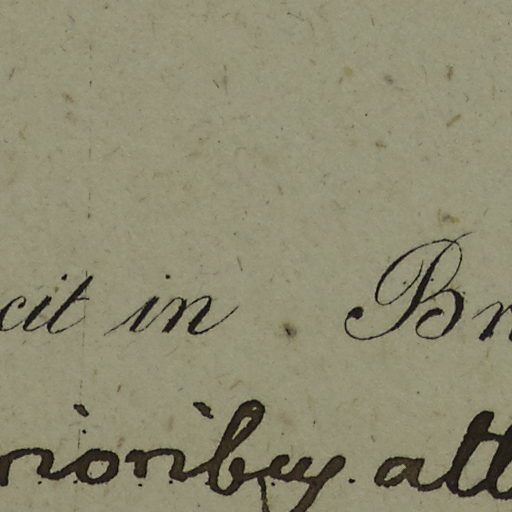 cit in Br
rioribus. att